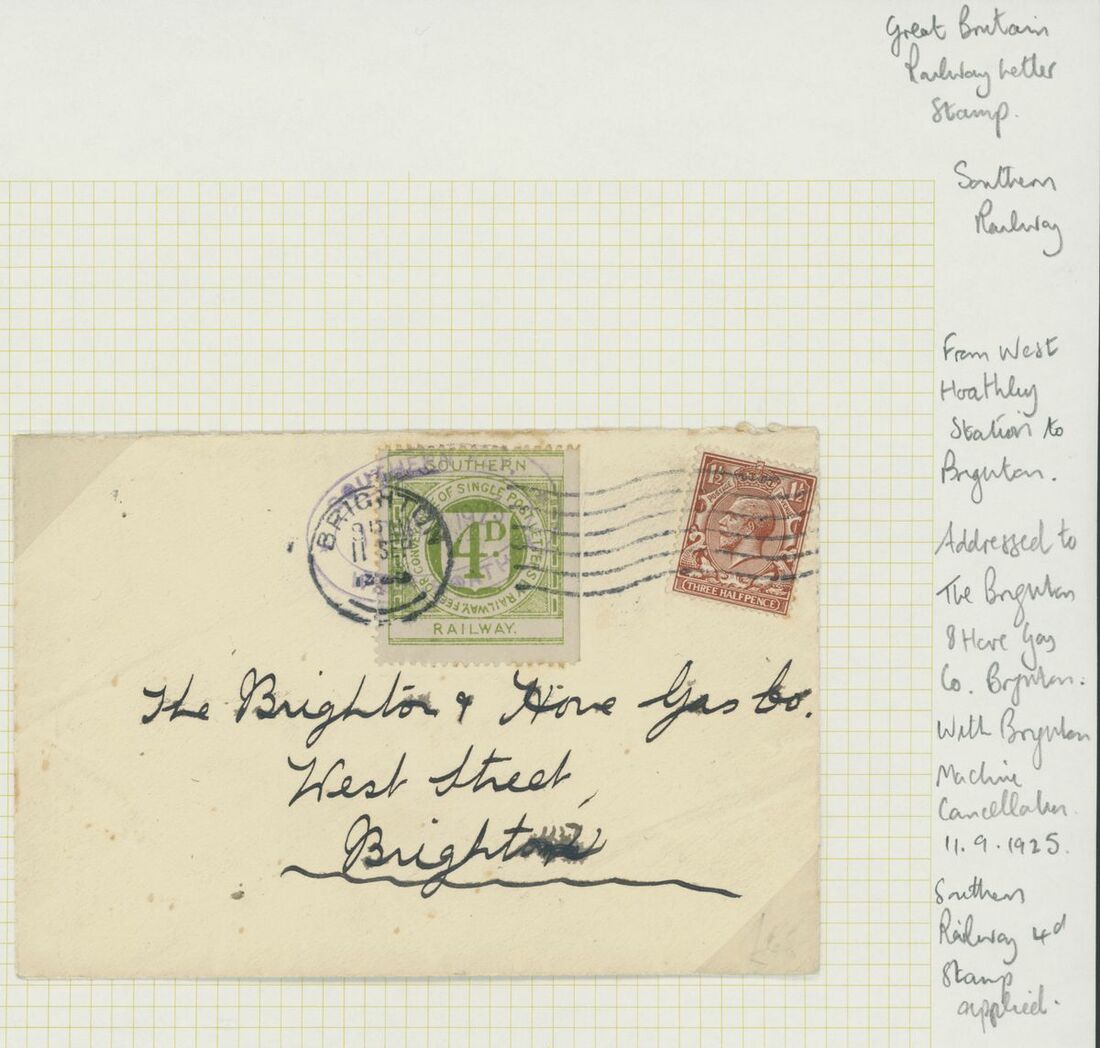 Great Britain
Railway Letter
Stamp.
Southern
Railway
From West
Hoathley
Station to
Brighton.
Addressed to
The Brighton
& Hove Gas
Co. Brighton.
With Brighton
Machine
Cancellation
11.9.1925.
Southern
Railway 4d
Stamp
applied.
SOUTHERN
BRIGHTON
11 SEP
SOUTHERN
FEE OF SINGLE POST LETTERS BY RAILWAY
4D.
RAILWAY.
1½ 1½
POSTAGE
THREE HALFPENCE
The Brighton & Hove Gas Co.
West Street,
Brighton